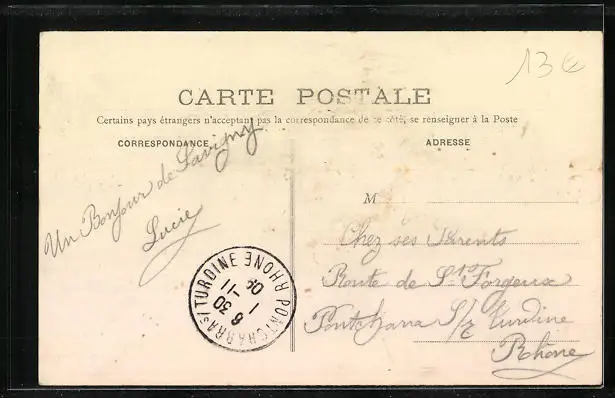 13€
CARTE POSTALE
Certains pays étrangers n'acceptant pas la correspondance de ce côté, se renseigner à la Poste
CORRESPONDANCE
ADRESSE
Un Bonjour de Savigny
Lucie
M
Chez ses Parents
Route de St Forgeux
Pontcharra S/ Turdine
Rhône
PONTCHARRA S/ TURDINE
RHONE
6 30
1 -11
09